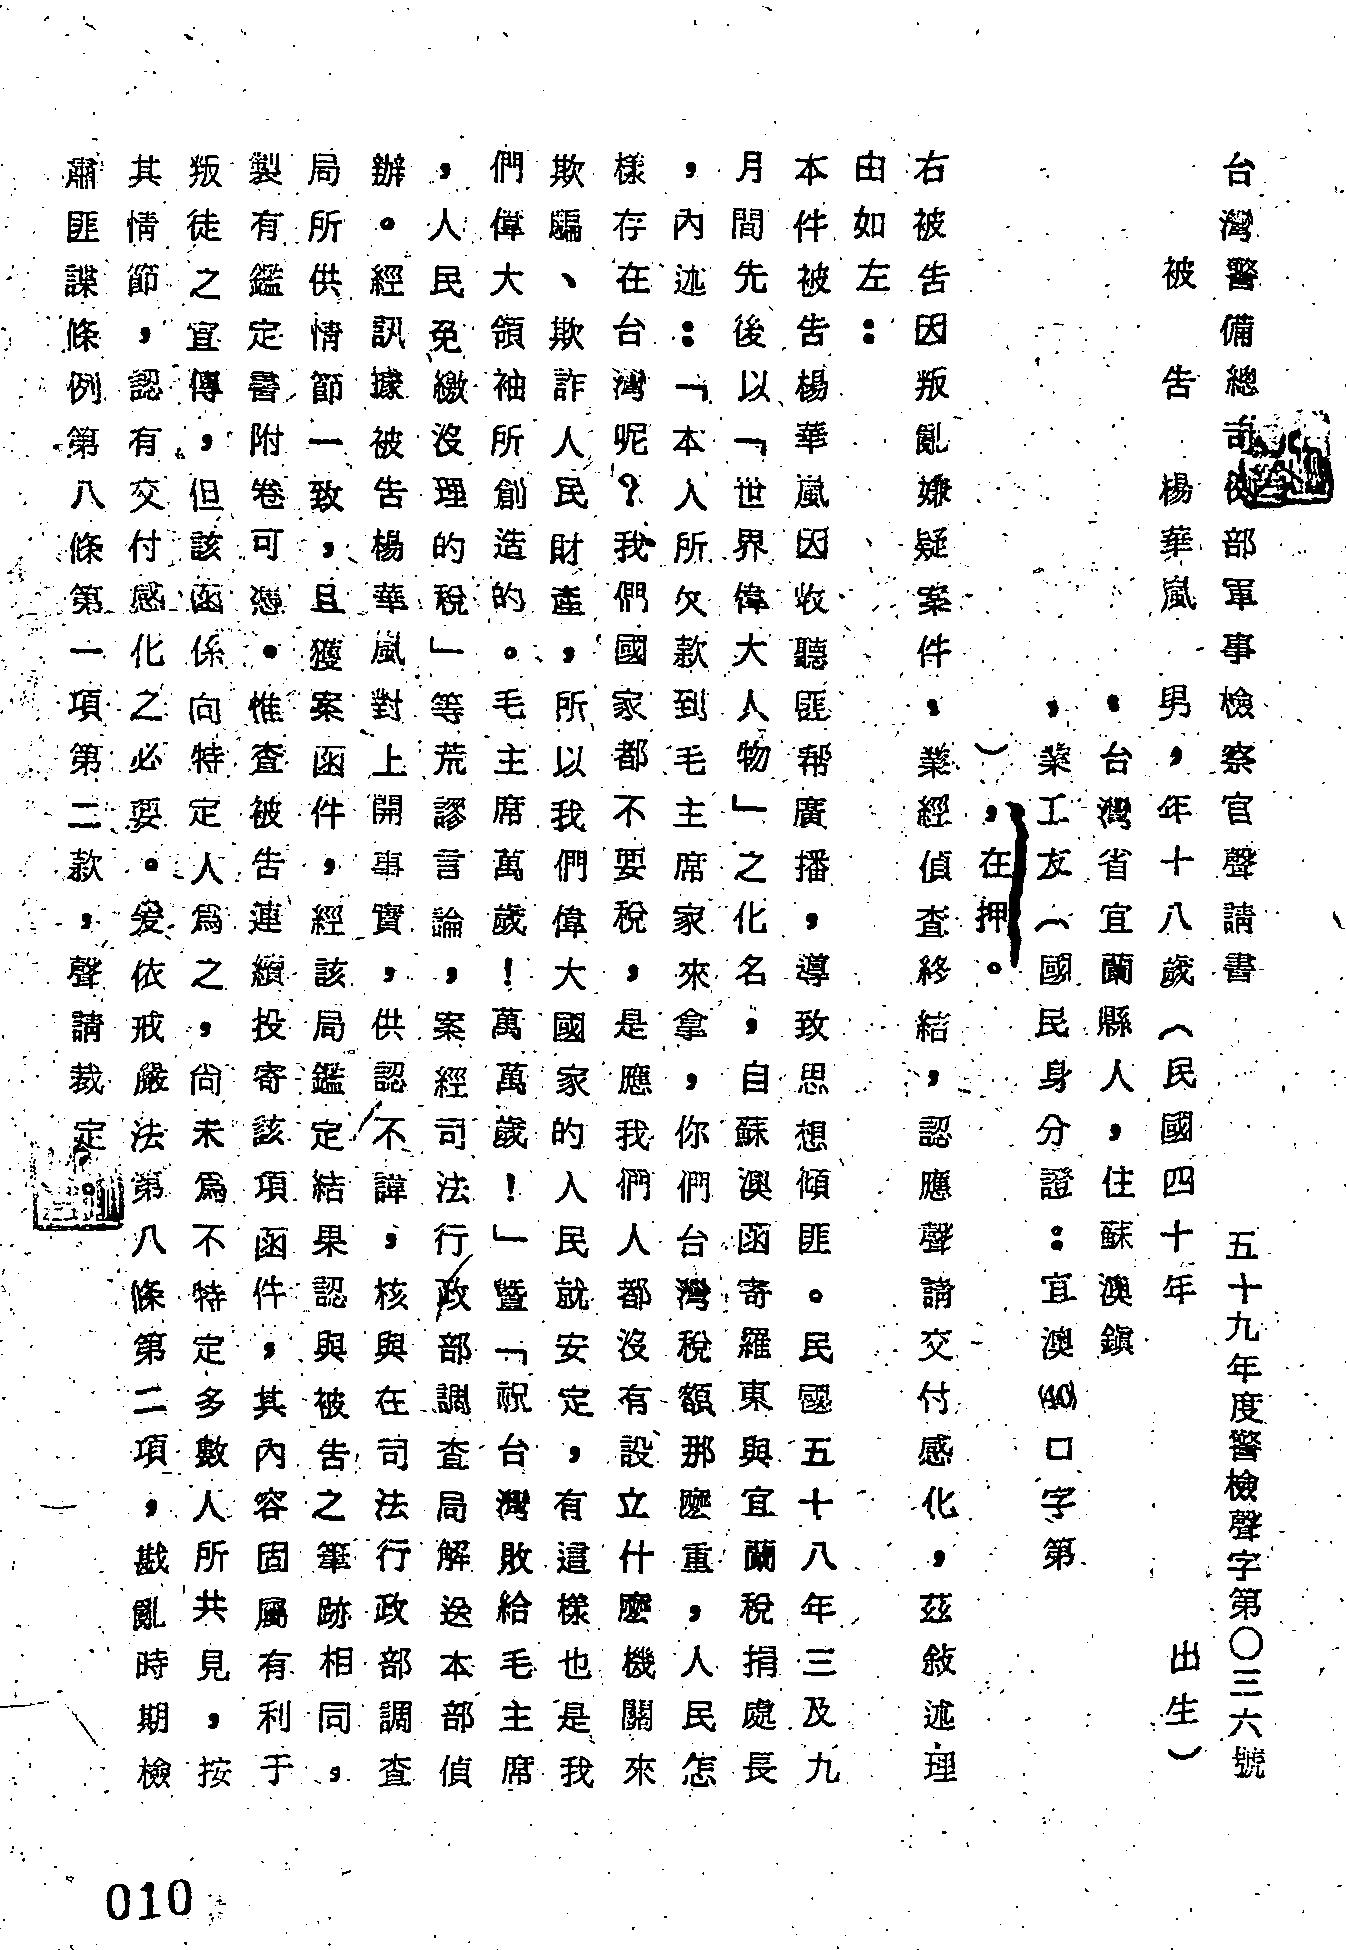 台灣警備總司令部軍事檢察官聲請書　五十九年度警檢聲字第〇三六號
被告　楊華嵐　男，年十八歲（民國四十年　出生）
，台灣省宜蘭縣人，住蘇澳鎮
，業工友（國民身分證：宜澳(40)口字第
），在押。
右被告因叛亂嫌疑案件，業經偵查終結，認應聲請交付感化，茲敘述理
由如左：
本件被告楊華嵐因收聽匪幫廣播，導致思想傾匪。民國五十八年三及九
月間先後以「世界偉大人物」之化名，自蘇澳函寄羅東與宜蘭稅捐處長
，內述：「本人所欠款到毛主席家來拿，你們台灣稅額那麼重，人民怎
樣存在台灣呢？我們國家都不要稅，是應我們人都沒有設立什麼機關來
欺騙、欺詐人民財產，所以我們偉大國家的人民就安定，有這樣也是我
們偉大領袖所創造的。毛主席萬歲！萬萬歲！」暨「祝台灣敗給毛主席
，人民免繳沒理的稅」等荒謬言論，案經司法行政部調查局解送本部偵
辦。經訊據被告楊華嵐對上開事實，供認不諱，核與在司法行政部調查
局所供情節一致，且獲案函件，經該局鑑定結果認與被告之筆跡相同，
製有鑑定書附卷可憑。惟查被告連續投寄該項函件，其內容固屬有利于
叛徒之宣傳，但該函係向特定人為之，尚未為不特定多數人所共見，按
其情節，認有交付感化之必要。爰依戒嚴法第八條第二項，戡亂時期檢
肅匪諜條例第八條第一項第二款，聲請裁定。
010